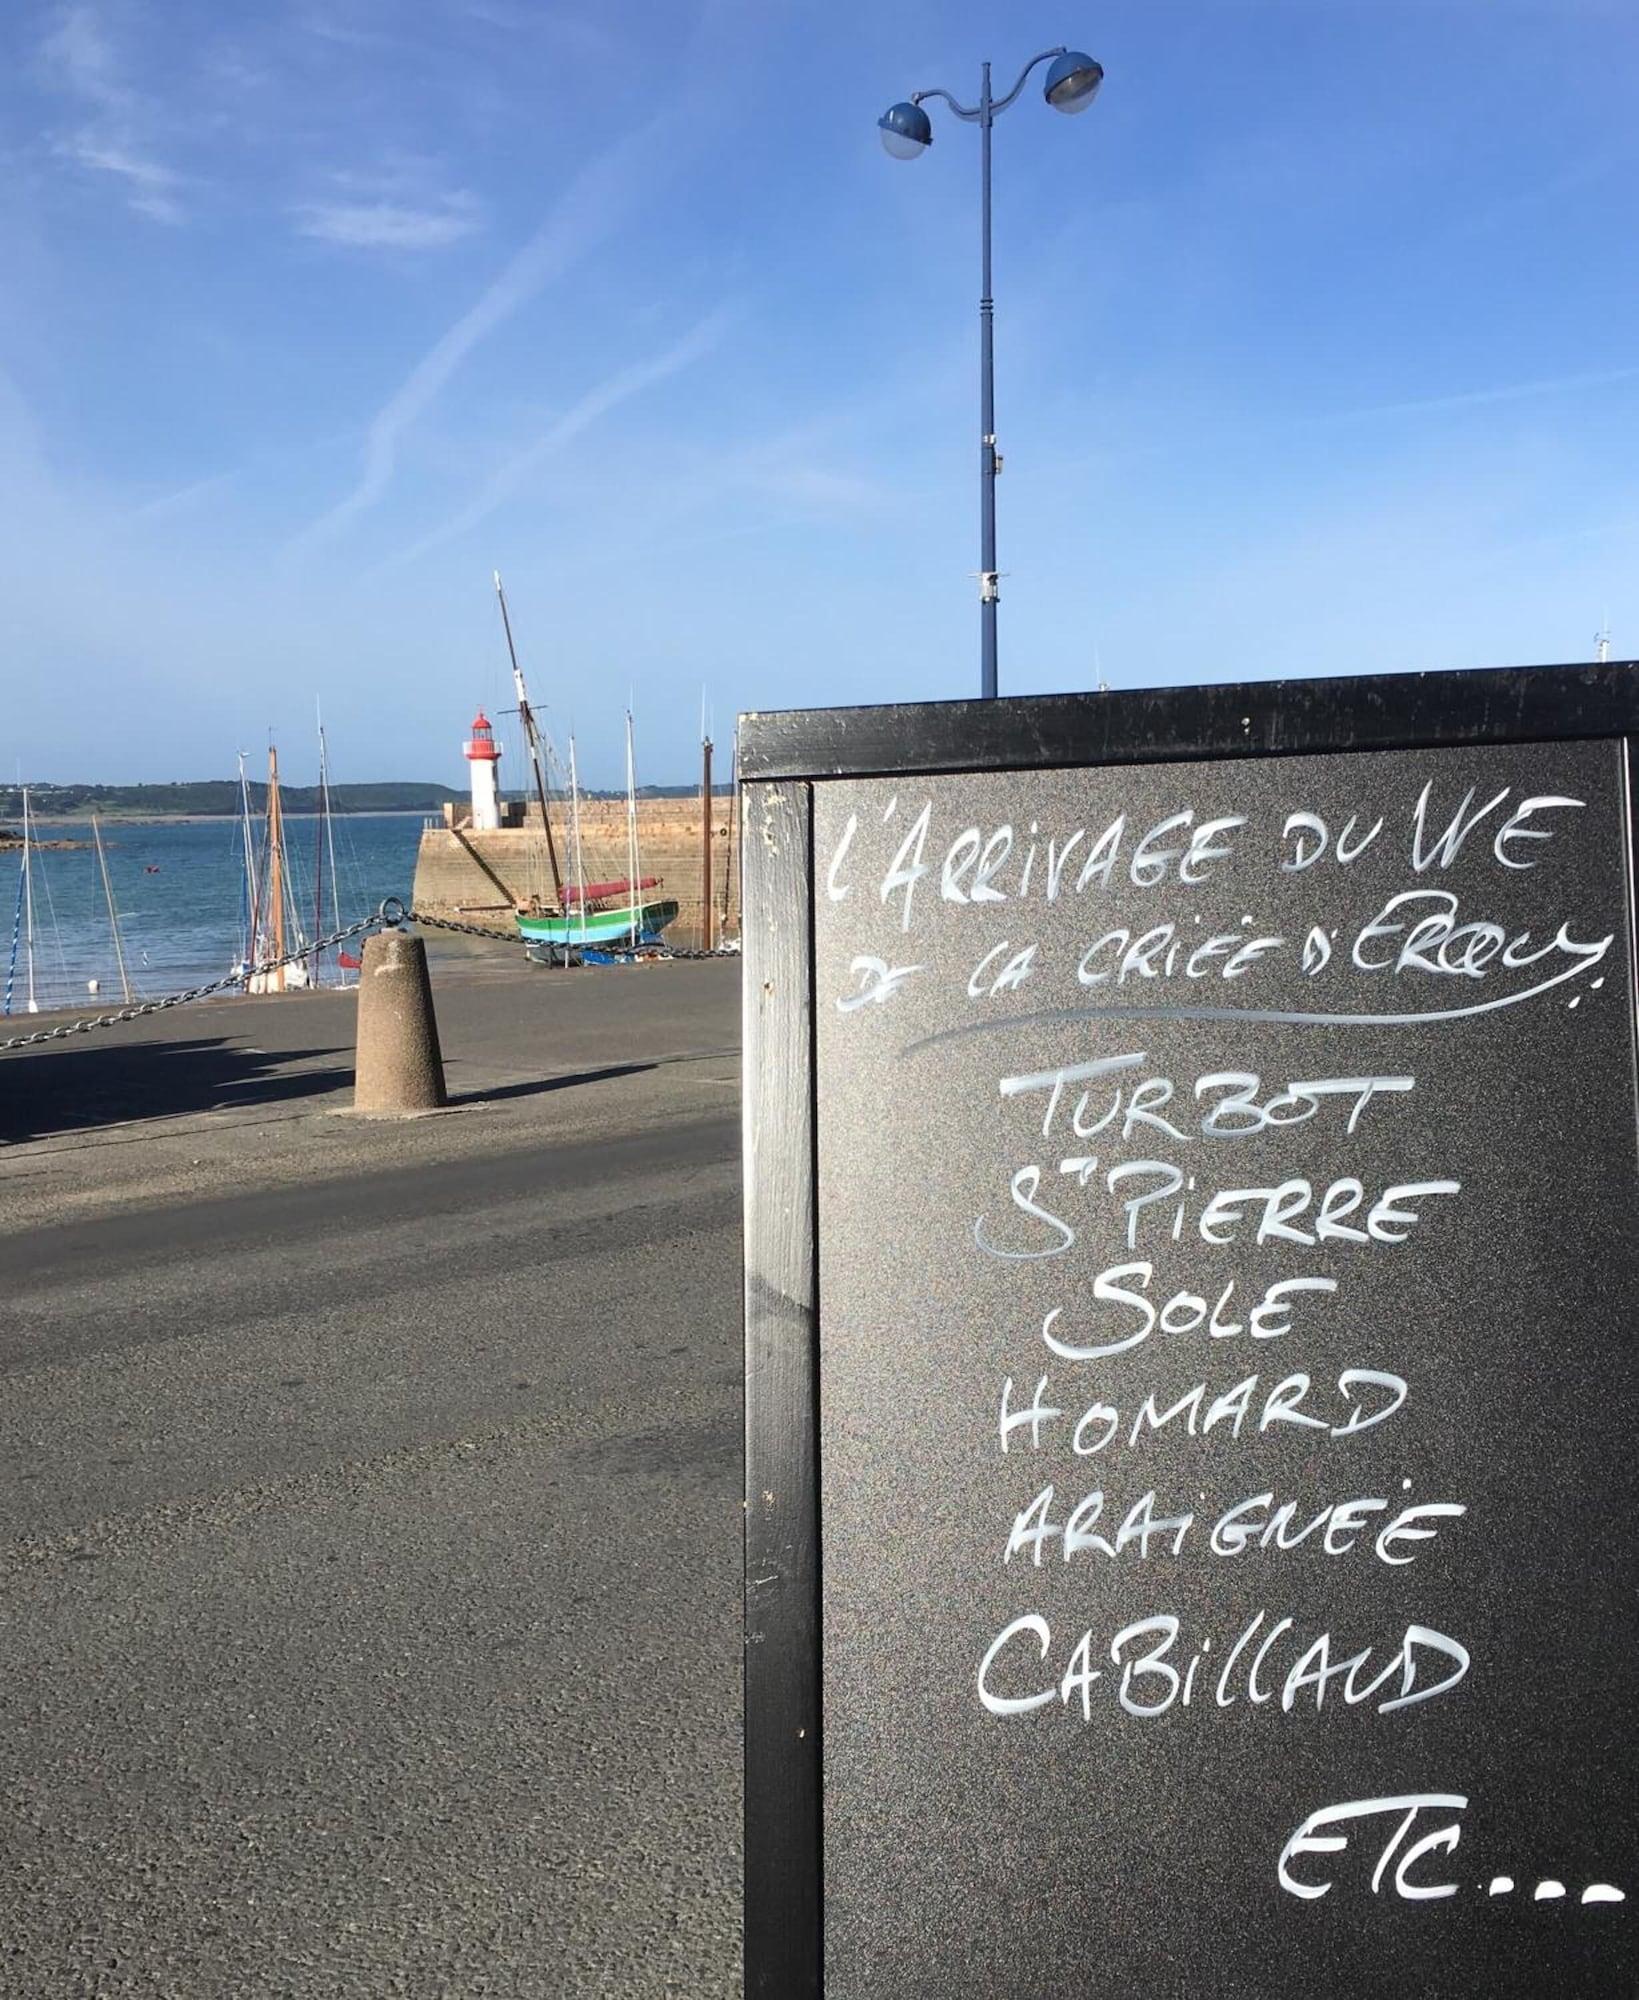 L'ARRIVAGE DU WE
DE LA CRIÉE D'ERQUY:
TURBOT
ST PIERRE
SOLE
HOMARD
ARAIGNÉE
CABILLAUD
ETC...